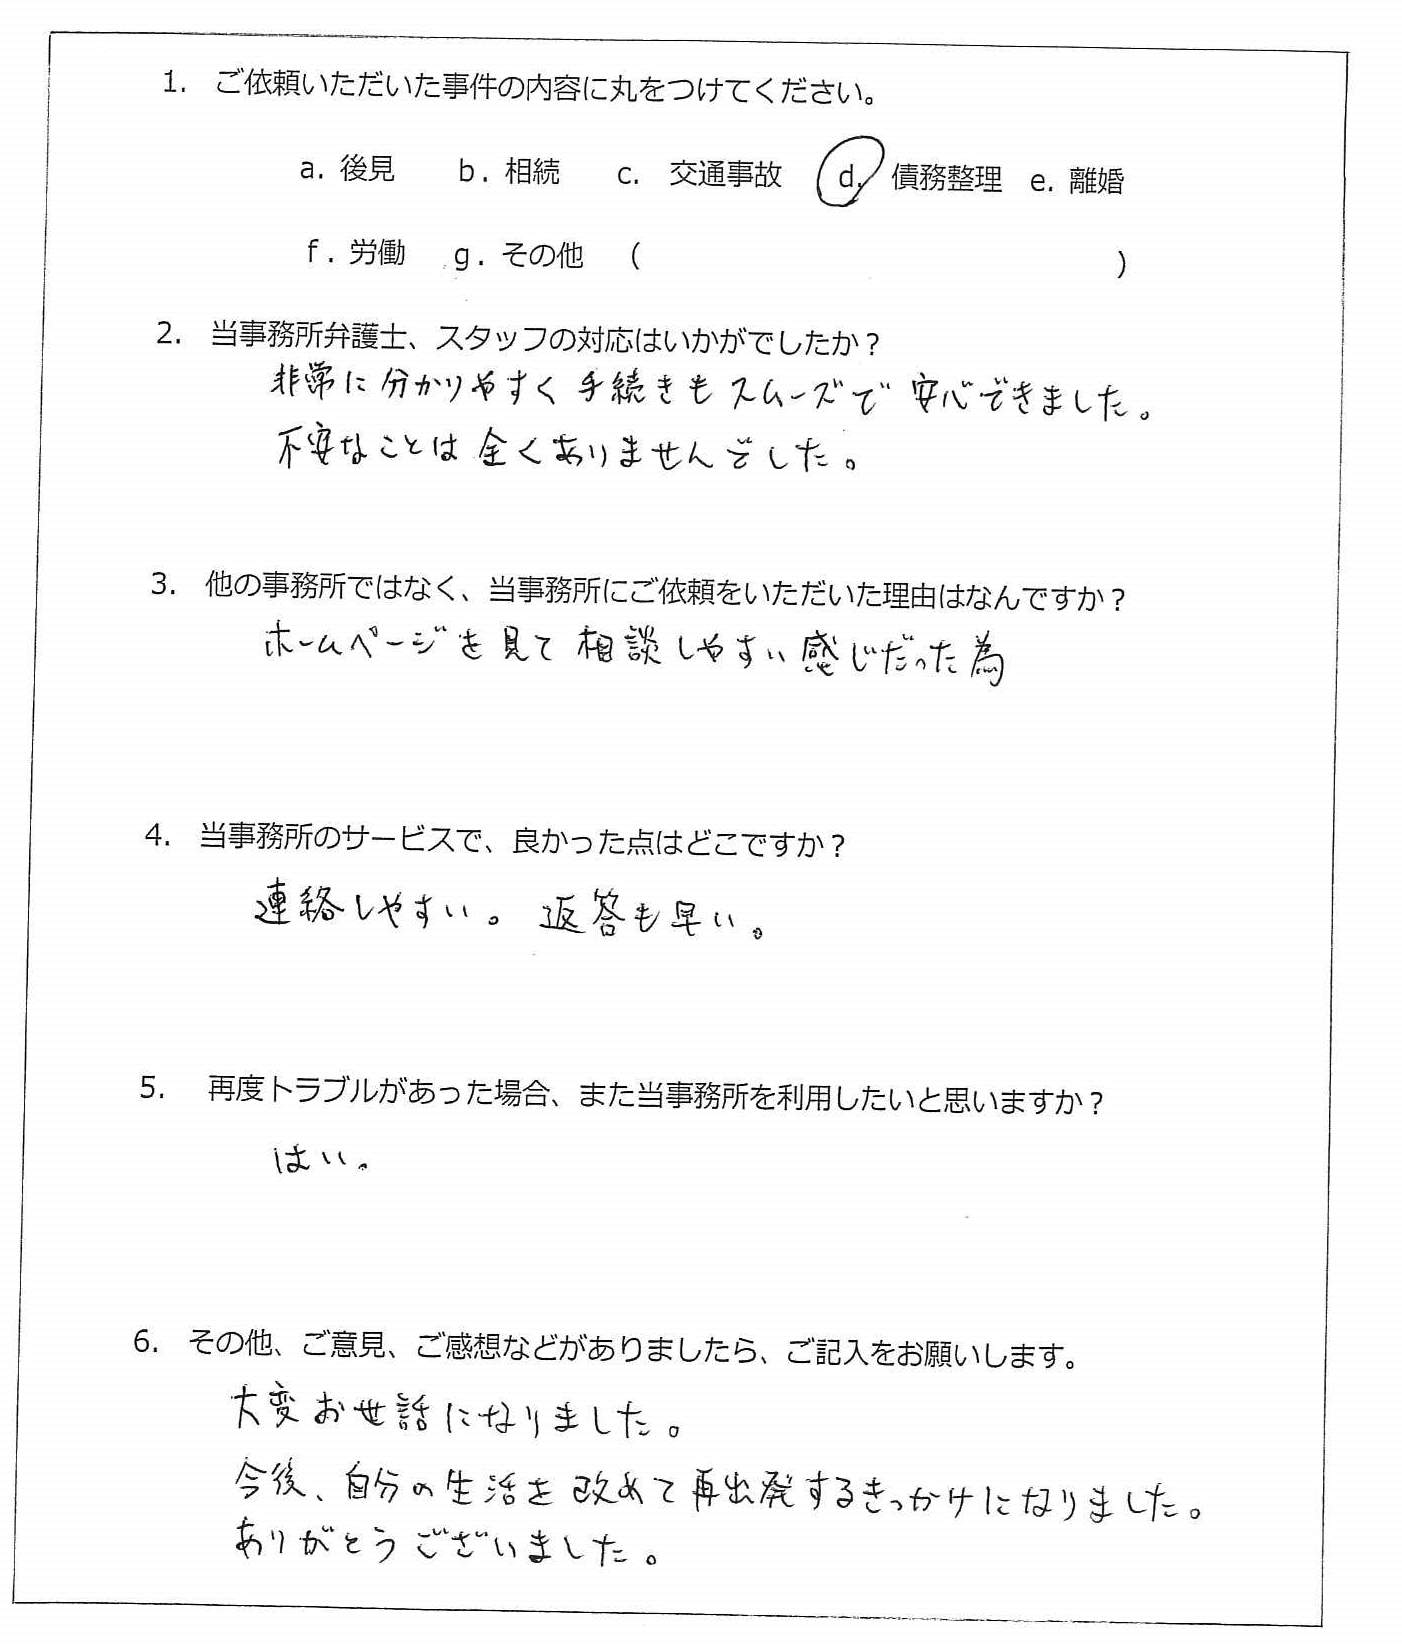 1. ご依頼いただいた事件の内容に丸をつけてください。
a. 後見 b. 相続 c. 交通事故 d. 債務整理 e. 離婚
f. 労働 g. その他 ( )
2. 当事務所弁護士、スタッフの対応はいかがでしたか？
非常に分かりやすく手続きもスムーズで安心できました。
不安なことは全くありませんでした。
3. 他の事務所ではなく、当事務所にご依頼をいただいた理由はなんですか？
ホームページを見て相談しやすい感じだった為
4. 当事務所のサービスで、良かった点はどこですか？
連絡しやすい。返答も早い。
5. 再度トラブルがあった場合、また当事務所を利用したいと思いますか？
はい。
6. その他、ご意見、ご感想などがありましたら、ご記入をお願いします。
大変お世話になりました。
今後、自分の生活を改めて再出発するきっかけになりました。
ありがとうございました。